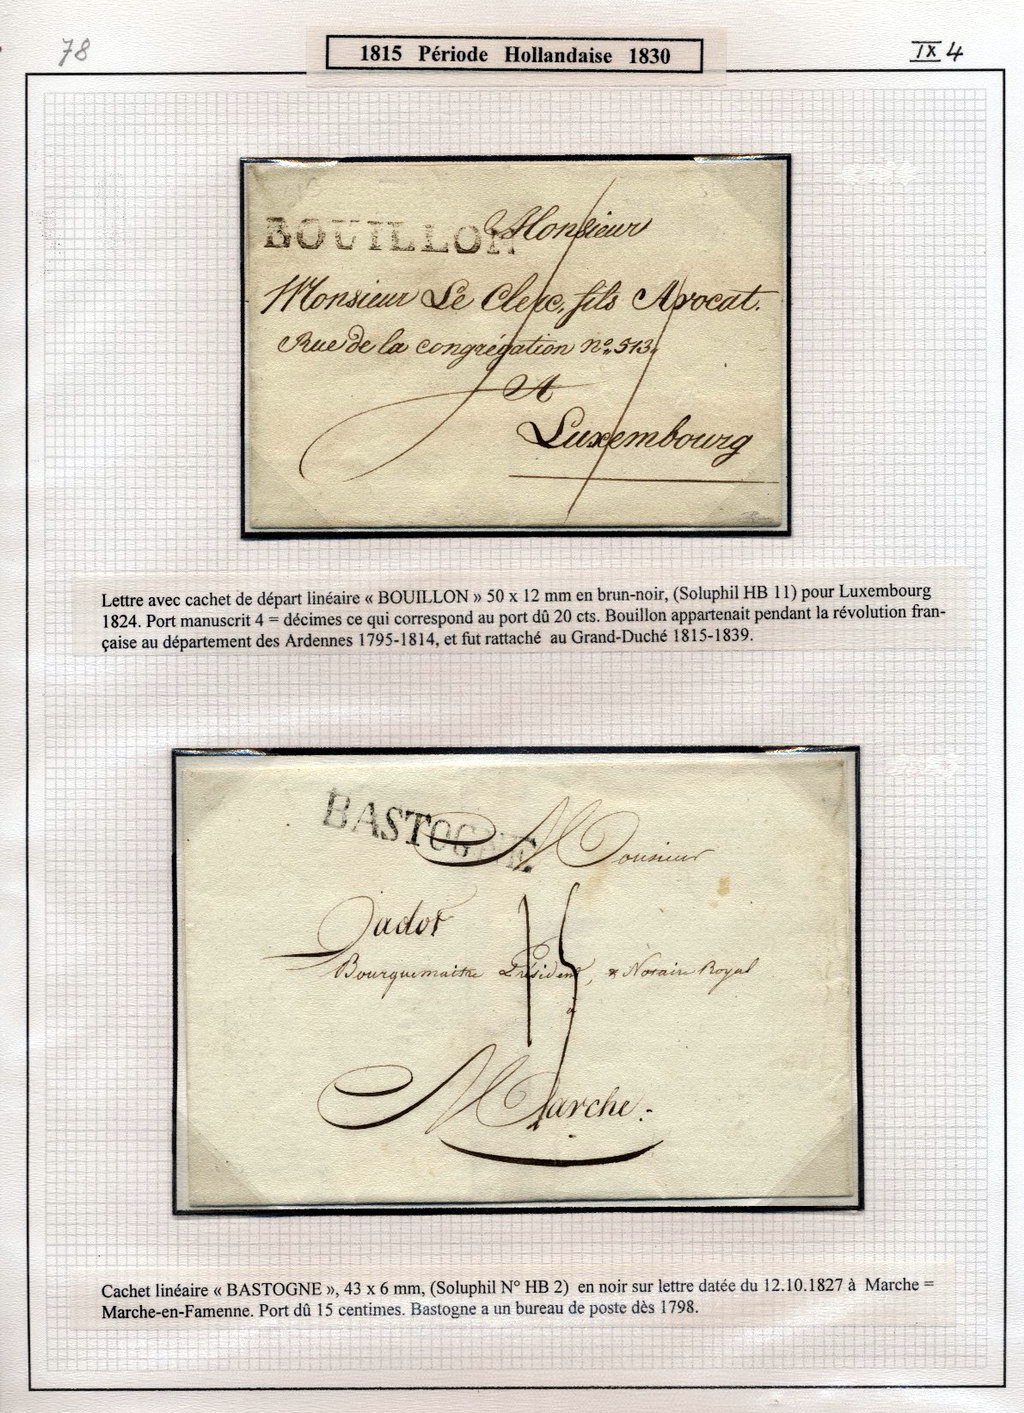 78
1815 Période Hollandaise 1830
IX 4
BOUILLON
Monsieur
Monsieur Le Clerc, fils Avocat.
Rue de la congrégation nº. 513.
A
Luxembourg
Lettre avec cachet de départ linéaire « BOUILLON » 50 x 12 mm en brun-noir, (Soluphil HB 11) pour Luxembourg
1824. Port manuscrit 4 = décimes ce qui correspond au port dû 20 cts. Bouillon appartenait pendant la révolution fran-
çaise au département des Ardennes 1795-1814, et fut rattaché au Grand-Duché 1815-1839.
BASTOGNE
Monsieur
Jadot
15
Bourguemaitre Président, & Notaire Royal
à
Marche.
Cachet linéaire « BASTOGNE », 43 x 6 mm, (Soluphil N° HB 2) en noir sur lettre datée du 12.10.1827 à Marche =
Marche-en-Famenne. Port dû 15 centimes. Bastogne a un bureau de poste dès 1798.